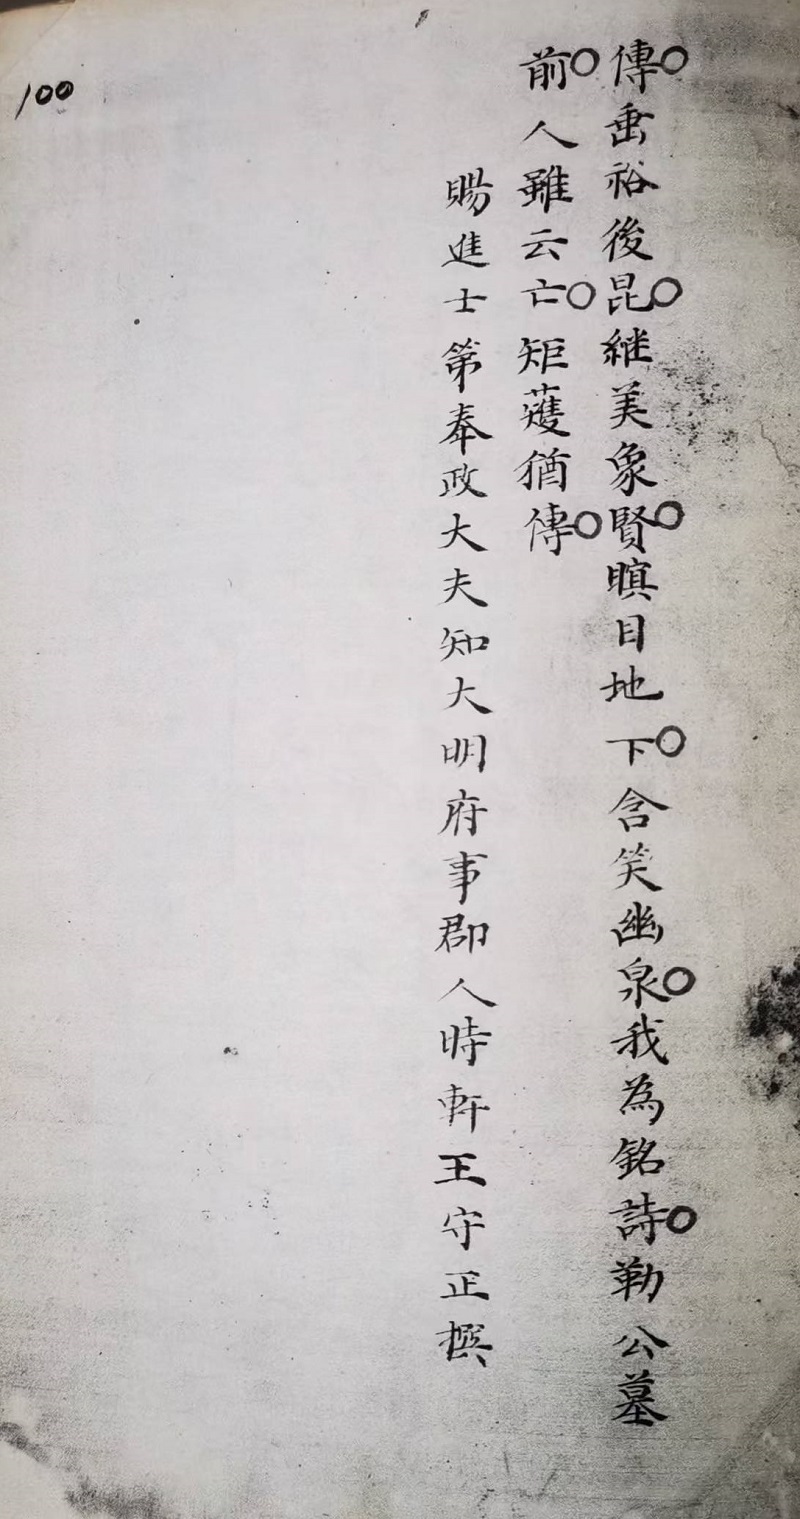 傳○垂裕後昆○継美象賢○瞑目地下○含笑幽泉○我為銘詩○勒公墓
前○人雖云亡○矩蒦猶傳○
賜進士第奉政大夫知大明府事郡人時軒王守正撰
100